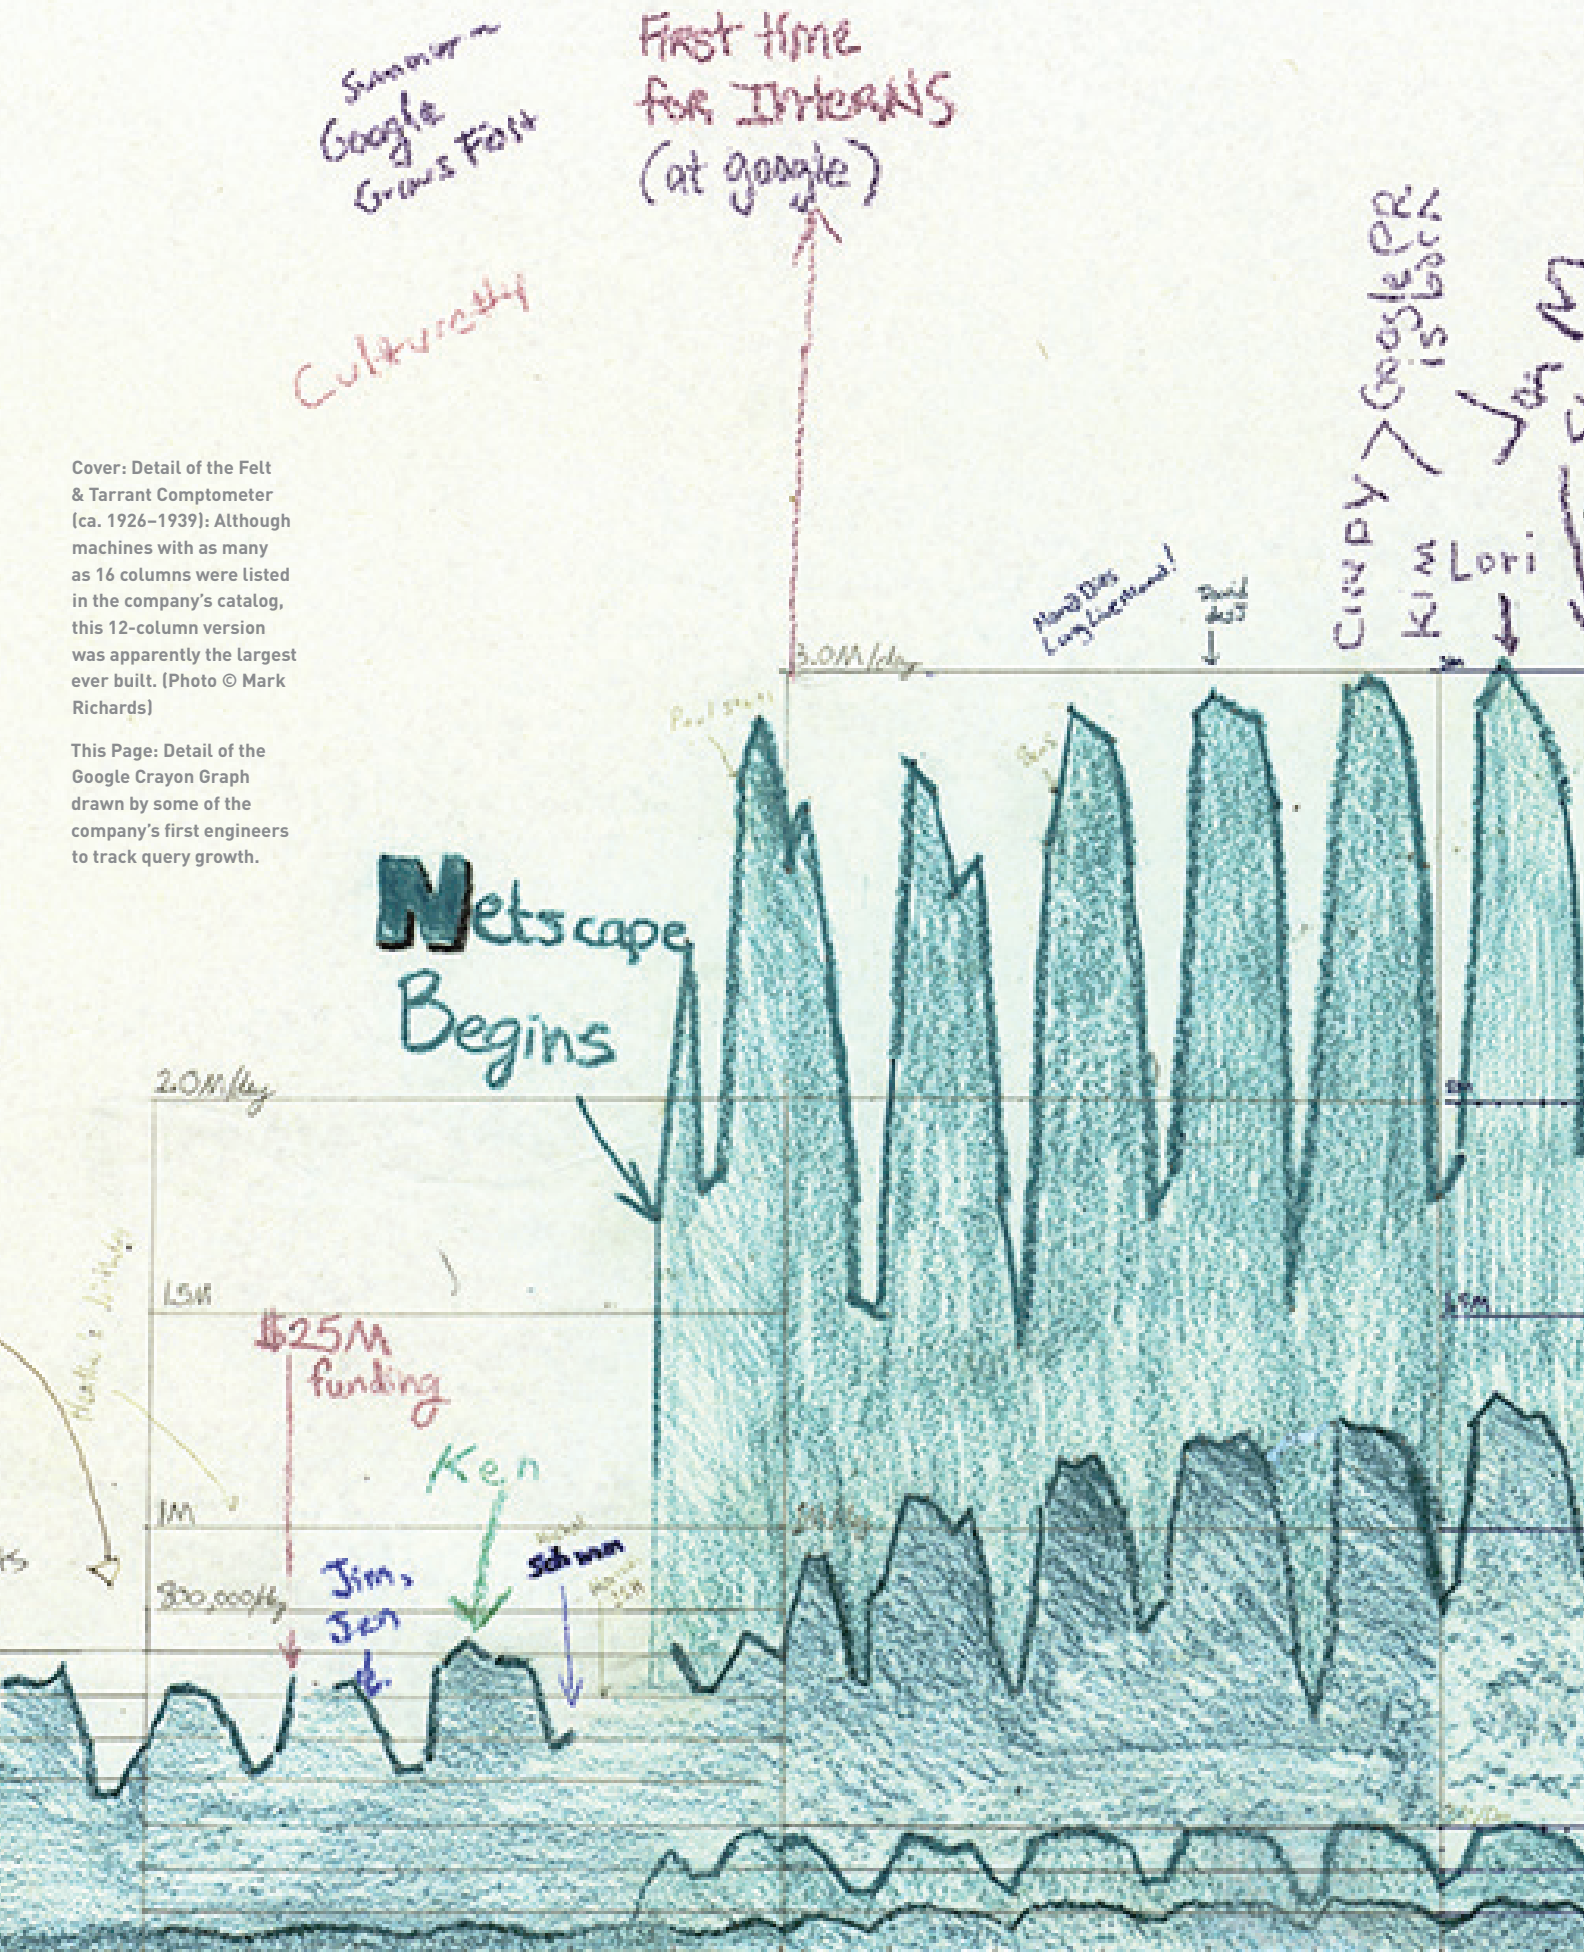 Summer ~
Google
Grows Fast
First time
for INterNS
(at google)
Culturally
Google PR
is born
CINDY >
KIM
Join
Lori
Cover: Detail of the Felt
& Tarrant Comptometer
(ca. 1926–1939): Although
machines with as many
as 16 columns were listed
in the company's catalog,
this 12-column version
was apparently the largest
ever built. (Photo © Mark
Richards)
This Page: Detail of the
Google Crayon Graph
drawn by some of the
company's first engineers
to track query growth.
Long Live Mond!
David
desJ
3.0M/day
Netscape
Begins
2.0M/day
1.5M
1.5M
$25M
funding
Ken
1M
Schwim
800,000/day
Jim,
Jen